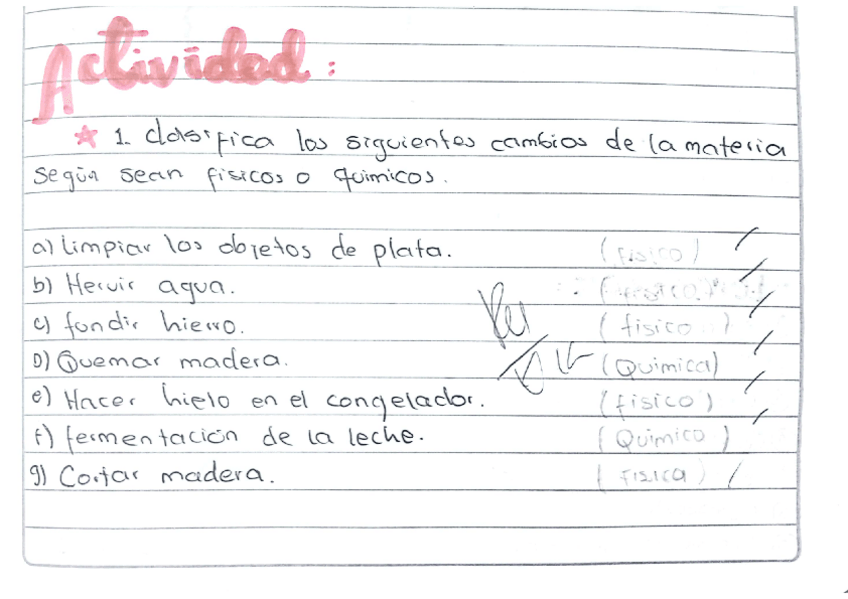 Actividad:
★ 1. clasifica los siguientes cambios de la materia
según sean físicos o químicos.
a) limpiar los objetos de plata. (fisico)
b) Hervir agua.
c) fundir hierro. (fisico)
D) Quemar madera. (Quimica)
e) Hacer hielo en el congelador. (fisico)
f) fermentación de la leche. (Quimico)
g) Cortar madera. (fisica)